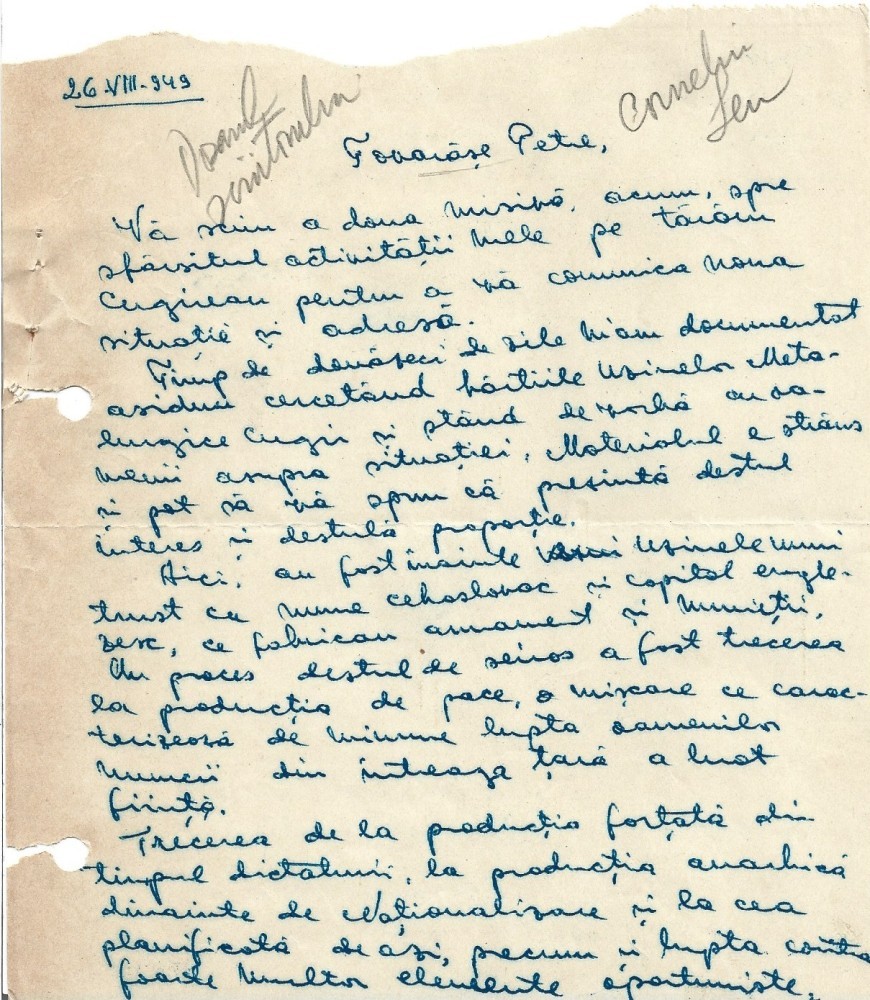 26.VIII-949
Corneliu
Leu
Tovarășe Petre,
Vă scriu a doua misivă, acum, spre
sfârșitul activității mele pe tărâm
Cugirean pentru a vă comunica noua
situație și adresă.
Timp de douăzeci de zile m'am documentat
asiduu cercetând hârtiile Uzinelor Meta-
lurgice Cugir și stând de vorbă cu oa-
menii asupra situației. Materialul e strâns
și pot să vă spun că prezintă destul
interes și destulă proporție.
Aici, au fost înainte Uzinele
trust cu nume cehoslovac și capital engle-
zesc, ce fabricau armament și muniții.
Un proces destul de serios a fost trecerea
la producția de pace, o mișcare ce carac-
terizează de minune lupta oamenilor
muncii din întreaga țară a luat
ființă.
Trecerea de la producția forțată din
timpul dictaturii, la producția anarhică
dinainte de Naționalizare și la cea
planificată de azi, precum și lupta contra
foarte multor elemente oportuniste,